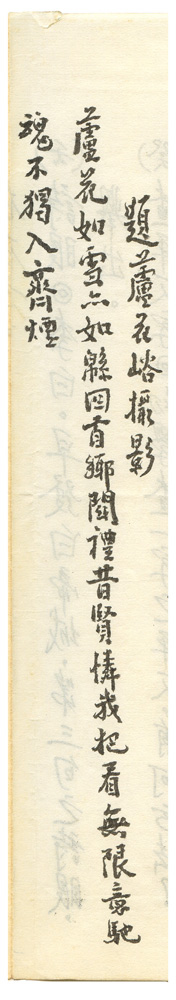 題蘆花峪攝影
蘆花如雪亦如緜回首鄉關禮昔賢憐我把看無限意馳
魂不獨入齊煙